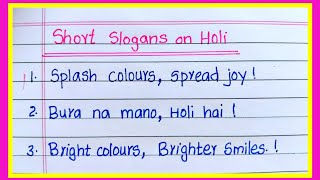 Short Slogans on Holi
1. Splash colours, spread joy !
2. Bura na mano, Holi hai !
3. Bright colours, Brighter smiles. !